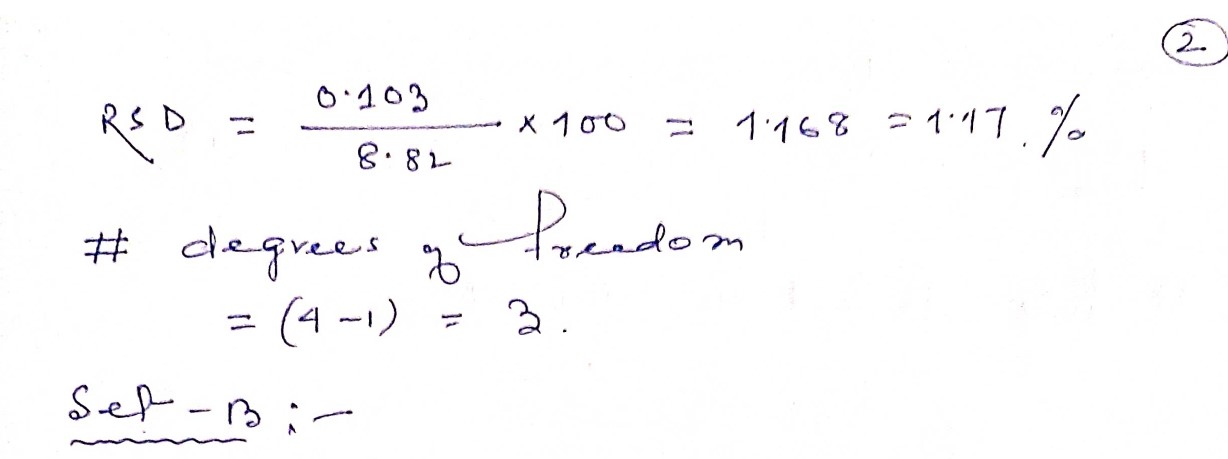 2
RSD = 0.103 / 8.82 × 100 = 1.168 = 1.17 %
# degrees of freedom
= (4-1) = 3.
Set-B :-